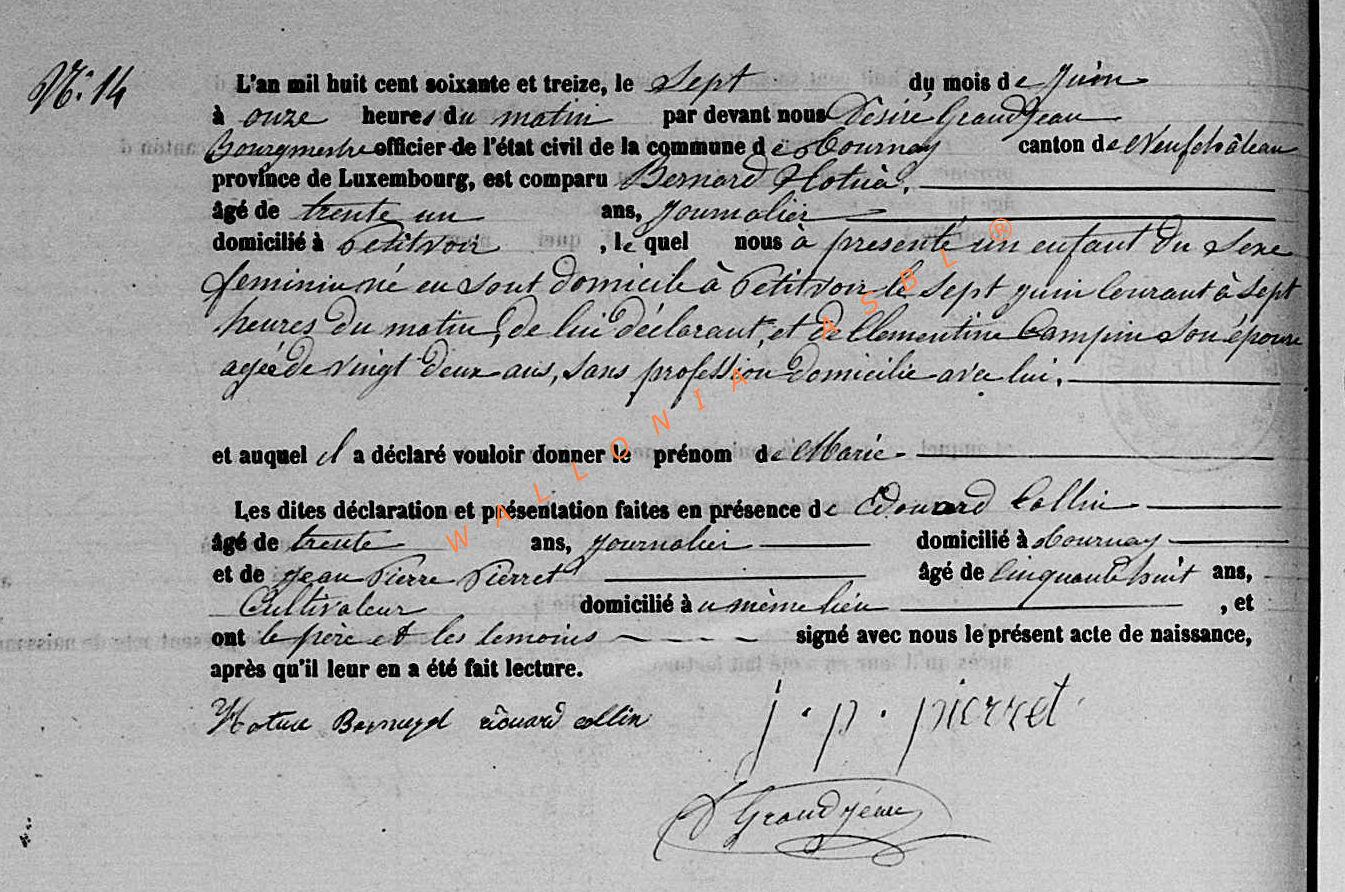 N° 14
L'an mil huit cent soixante et treize, le sept du mois de juin
à onze heures du matin par devant nous Désiré Grandjean
Bourgmestre officier de l'état civil de la commune de Tournay canton de Neufchâteau
province de Luxembourg, est comparu Bernard
âgé de trente un ans, journalier
domicilié à Petitvoir, le quel nous à presenté un enfant du sexe
feminin né en sont domicile à Petitvoir le sept juin courant à sept
heures du matin, de lui déclarant, et de Clementine Campin son épouse
agée de vingt deux ans, sans profession domicilie avec lui.
et auquel il a déclaré vouloir donner le prénom de Marie
Les dites déclaration et présentation faites en présence de Edouard Collin
âgé de trente ans, journalier domicilié à Tournay
et de Jean Pierre Pierret âgé de cinquante huit ans,
Cultivateur domicilié à u même lieu, et
ont le père et les temoins signé avec nous le présent acte de naissance,
après qu'il leur en a été fait lecture.
édouard collin
j. p. pierret
D Grandjean
WALLONIA ASBL ®